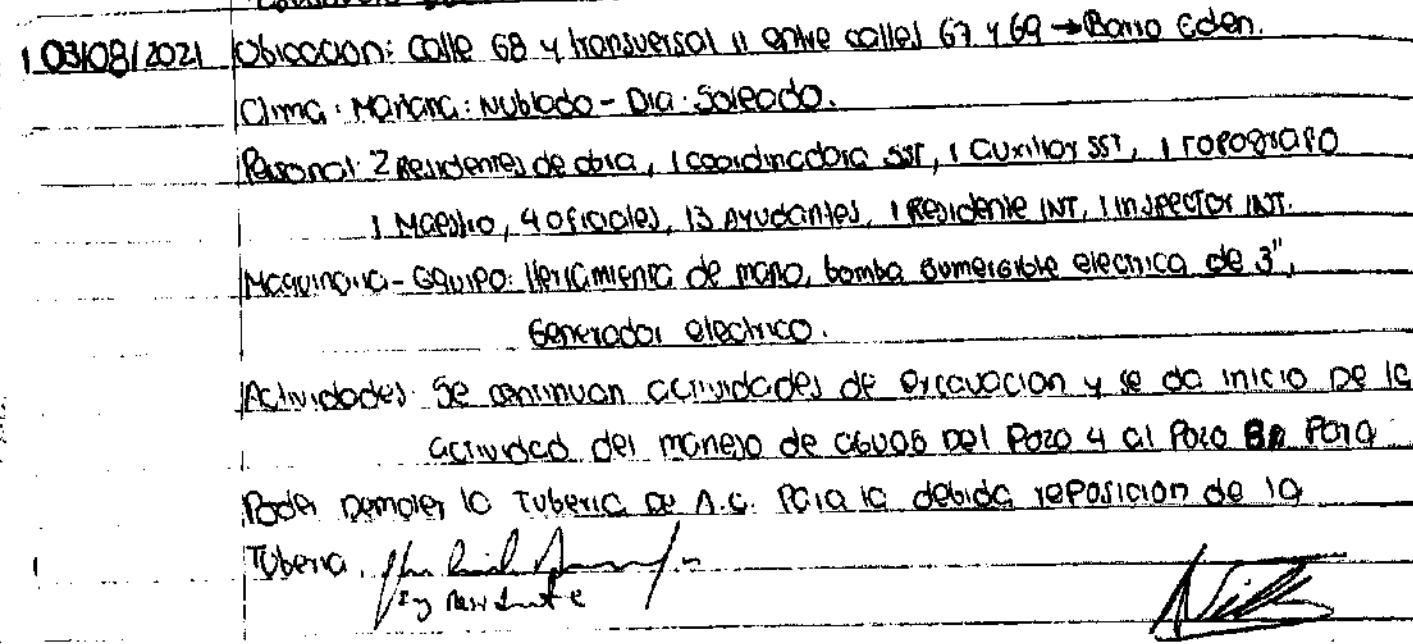 03/08/2021 Obicacion: Calle 68 y transversal 11 entre calles 67 y 69 → Barrio Eden.
Clima: Mañana: Nublado - Dia: Soleado.
Personal: 2 Residentes de obra, 1 coordinadora SST, 1 auxiliar SST, 1 Topografo
1 Maestro, 4 oficiales, 13 Ayudantes, 1 Residente INT, 1 inspector INT.
Maquinaria - Equipo: Herramienta de mano, bomba sumergible electrica de 3",
Generador electrico.
Actividades: Se continuan actividades de excavacion y se da inicio de la
actividad del manejo de aguas del Pozo 4 al Pozo Para
Poder Demoler la Tuberia de A.C. Para la debida reposicion de la
Tuberia.
Ing Residente